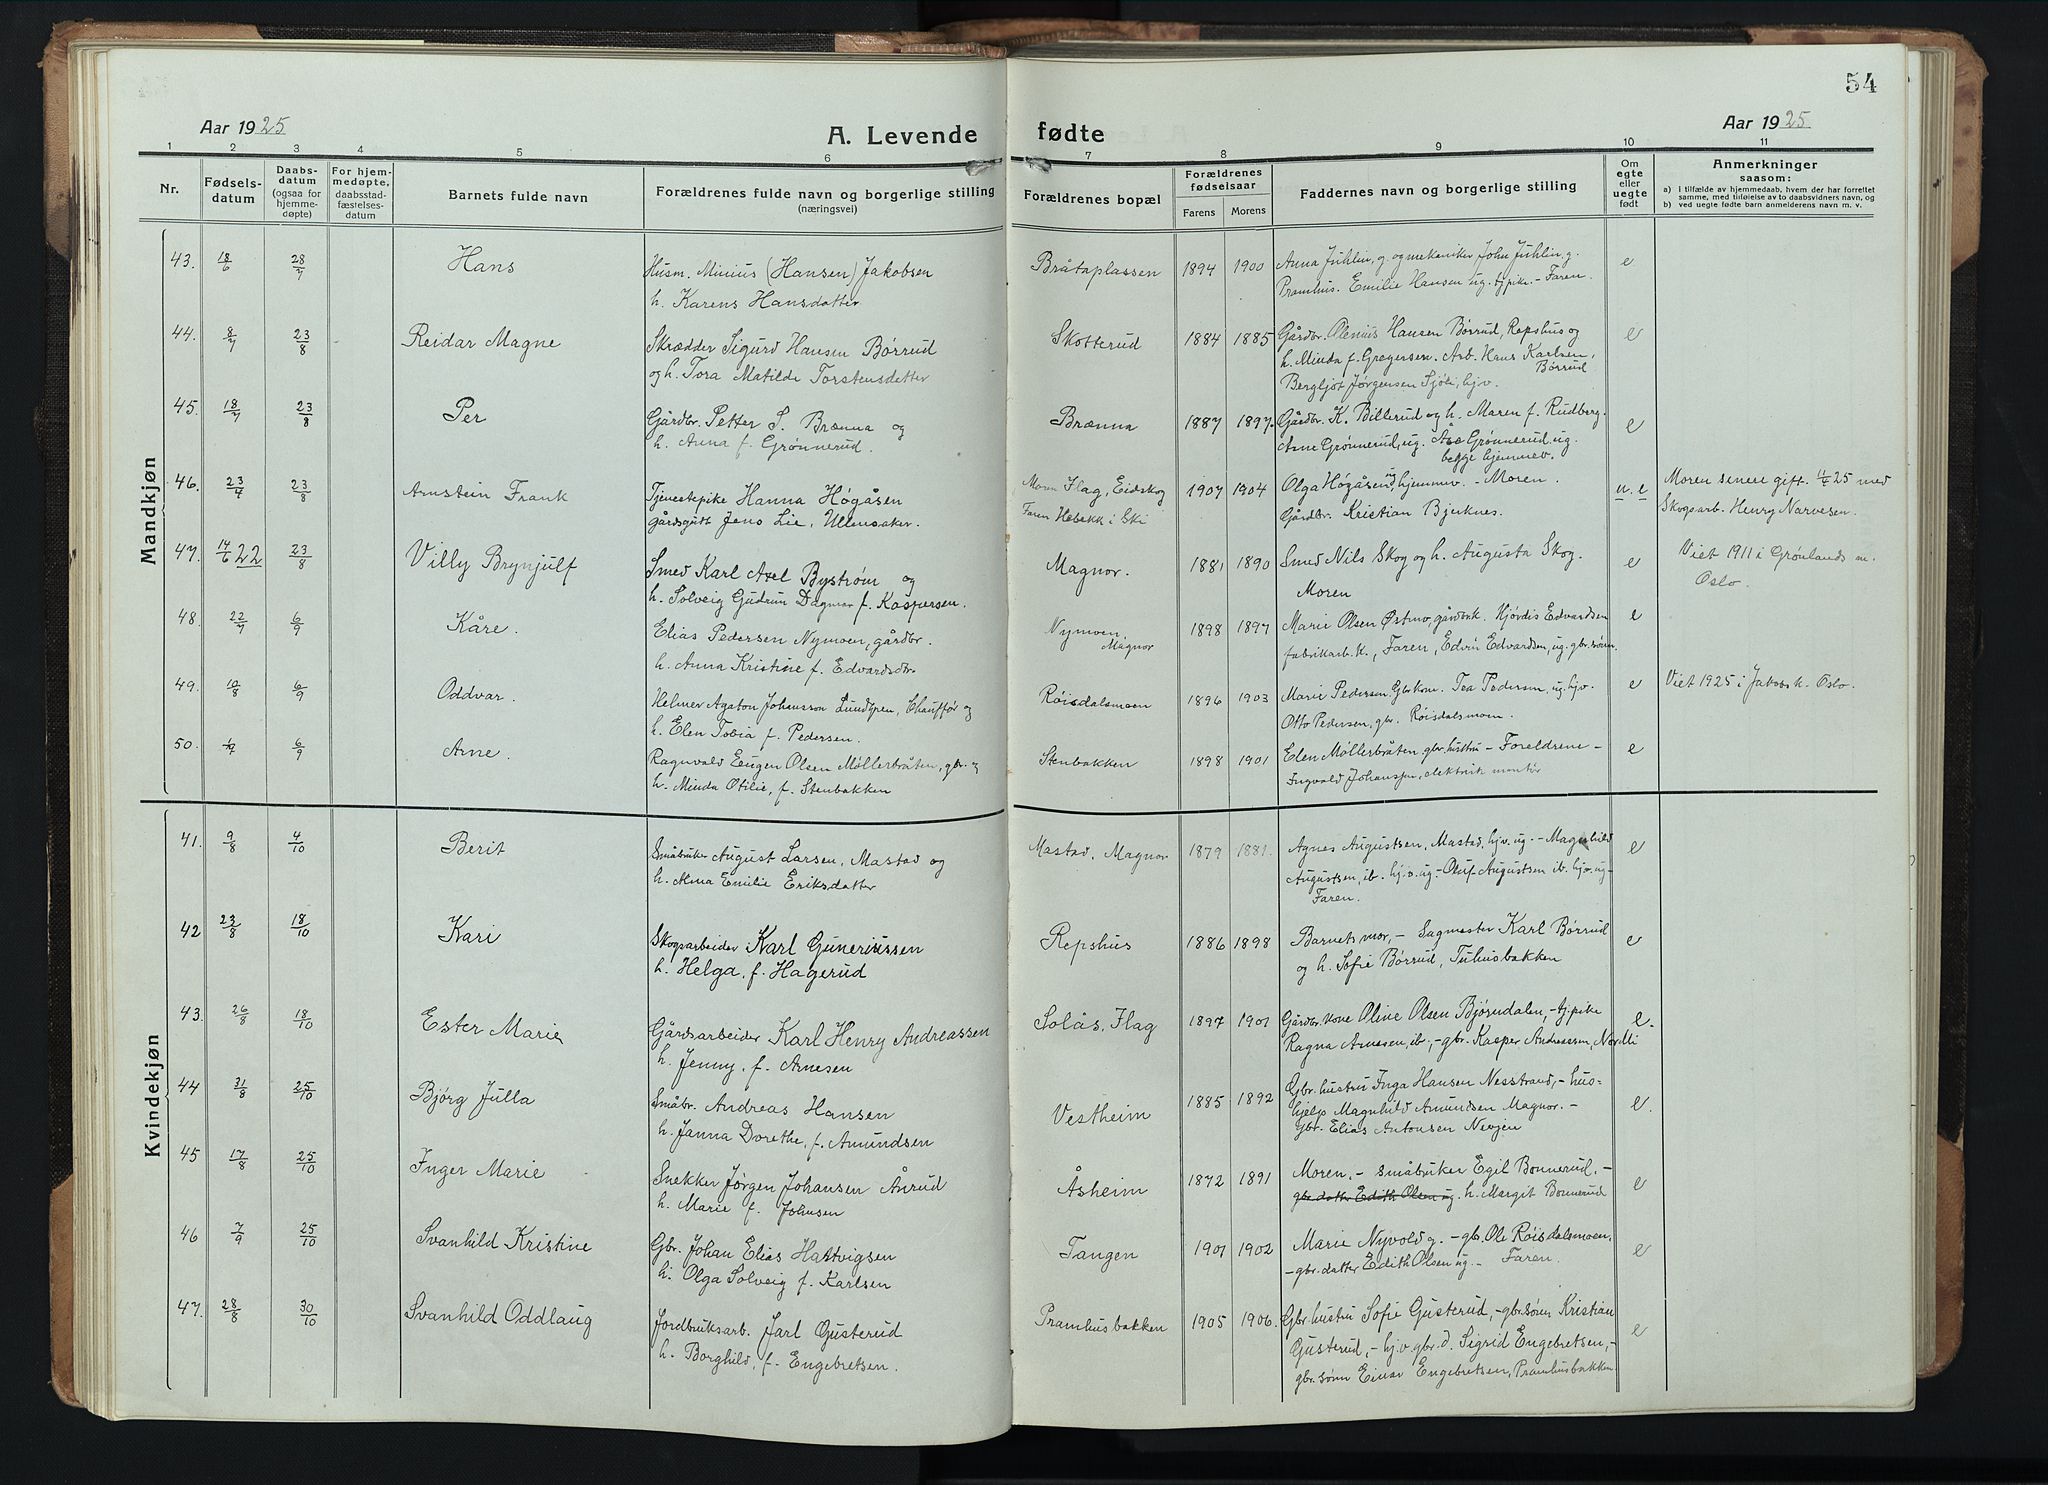 54
Aar 1925
A. Levende fødte
Aar 1925
1 2 3 4 5 6 7 8 9 10 11
Nr.
Fødsels-
datum
Daabs-
datum
(ogsaa for
hjemme-
døpte)
For hjem-
medøpte,
daabsstad-
fæstelses-
datum
Barnets fulde navn
Forældrenes fulde navn og borgerlige stilling
(næringsvei)
Forældrenes bopæl
Forældrenes
fødselsaar
Farens Morens
Faddernes navn og borgerlige stilling
Om
egte
eller
uegte
født
Anmerkninger
saasom:
a) i tilfælde av hjemmedaab, hvem der har forrettet
samme, med tilføielse av to daabsvidners navn, og
b) ved uegte fødte barn anmelderens navn m. v.
Mandkjøn
43. 18/6 28/7 Hans
Husm. Minius (Hansen) Jakobsen
h. Karens Hansdatter
Bråtaplassen 1894 1900
Anna Juhlin, g. og mekaniker John Juhlin g.
Pramhus. Emilie Hansen ug. tj.pike. - Faren.
e
44. 8/7 23/8 Reidar Magne
Skrædder Sigurd Hansen Børrud
og h. Tora Matilde Torstensdatter
Skotterud 1884 1885
Gårdbr. Olenius Hansen Børrud, Repshus og
h. Minda f. Gregersen. Arb. Hans Karlsen,
Børrud
Bergljot Jørgensen Sjøli, hjv.
e
45. 18/7 23/8 Per
Gårdbr. Petter S. Brænna og
h. Anna f. Grønnerud.
Brænna 1887 1897.
Gårdbr. K. Billerud og h. Maren f. Rudberg.
Arne Grønnerud, ug. Åse Grønnerud ug.
begge hjemmev.
e
46. 23/7 23/8 Arnstein Frank
Tjenestepike Hanna Høgåsen
gårdsgutt Jens Lie, Ullensaker.
Moren Flag, Eidskog
Faren Hebekk i Ski
1907 1904
Olga Høgåsen ug hjemmv. - Moren.
Gårdbr. Kristian Bjerknes.
u. e
Moren senere gift 25 med
Skogsarb. Henry Narvesen.
47. 14/6 22 23/8 Villy Brynjulf
Smed Karl Axel Bystrøm og
h. Solveig Gudrun Dagmar f. Kaspersen.
Magnor. 1881 1890
Smed Nils Skog og h. Augusta Skog.
Moren
e
Viet 1911 i Grønlands m.
Oslo.
48. 22/7 6/9 Kåre.
Elias Pedersen Nymoen, gårdbr.
h. Anna Kristine f. Edvardsdtr
Nymoen,
Magnor
1898 1897
Marie Olsen Østmo, gårdbrk. Hjørdis Edvardsen
fabrikarb. k., Faren, Edvin Edvardsen, ug. gbr. sønn.
e
49. 10/8 6/9 Oddvar.
Helmer Agaton Johansson Lundgren, Chauffør og
h. Elen Tobia f. Pedersen.
Røisdalsmoen 1896 1903
Marie Pedersen Gbr kone. Tea Pedersen ug. hjv.
Otto Pedersen, gbr. Røisdalsmoen.
e
Viet 1925 i Jakobsk. Oslo.
50. 6/9 Arne.
Ragnvald Eugen Olsen Møllerbråten, gbr. og
h. Minda Otilie, f. Stenbakken
Stenbakken 1898 1901
Elen Møllerbråten gbr. hustru - Foreldrene -
Ingvald Johansen, elektrik montør
e
Kvindekjøn
41. 9/8 4/10 Berit
Småbruker August Larsen, Mastad og
h. Alma Emilie Eriksdatter
Mastad, Magnor 1879 1881.
Agnes Augustsen, Mastad, hjv. ug. - Magnhild
Augustsen, ib. hj.v. ug. - Oluf Augustsen ib. hjv. ug -
Faren.
e
42 23/8 18/10 Kari
Skogsarbeider Karl Guneriussen
h. Helga, f. Hagerud
Repshus 1886 1898
Barnets mor, - Sagmester Karl Børrud
og h. Sofie Børrud, Tuhusbakken
e
43. 26/8 18/10 Ester Marie
Gårdsarbeider Karl Henry Andreassen
h. Jenny, f. Arnesen
Solås, Flag 1897 1901
Gårdbr. kone Oline Olsen Bjørndalen, - tj. pike
Ragna Arnesen, ib., - gbr. Kasper Andreassen, Nordli
e.
44 31/8 25/10 Bjørg Julla
Småbr. Andreas Hansen
h. Janna Dorethe, f. Amundsen
Vestheim 1885 1892
Gbr. hustru Inga Hansen Nesstrand, - hus-
hjelp Magnhild Amundsen Magnor. -
Gbr. Elias Antonsen
e.
45 17/8 25/10 Inger Marie
Snekker Jørgen Johansen Årrud
h. Marie f. Johnsen
Åsheim 1872 1891
Moren, - småbruker Egil Bonnerud, -
gbr datter Edith Olsen ug. h. Margit Bonnerud
e
46 7/9 25/10 Svanhild Kristine
Gbr. Johan Elias Hartvigsen
h. Olga Solveig f. Karlsen
Tangen 1901 1902
Marie Nyvold g. - gb. Ole Røisdalsmoen,
- gbr. datter Edith Olsen ug. - Faren.
e
47. 28/8 30/10 Svanhild Oddlaug
Jordbruksarb. Jarl Gusterud
h. Borghild, f. Engebretsen.
Pramhusbakken 1905 1906.
Gbr. hustru Sofie Gusterud, - gbr.sønn Kristian
Gusterud, - hj.v gbr.d. Sigrid Engebretsen, -
gbr. sønn Einar Engebretsen, Pramhusbakken.
e